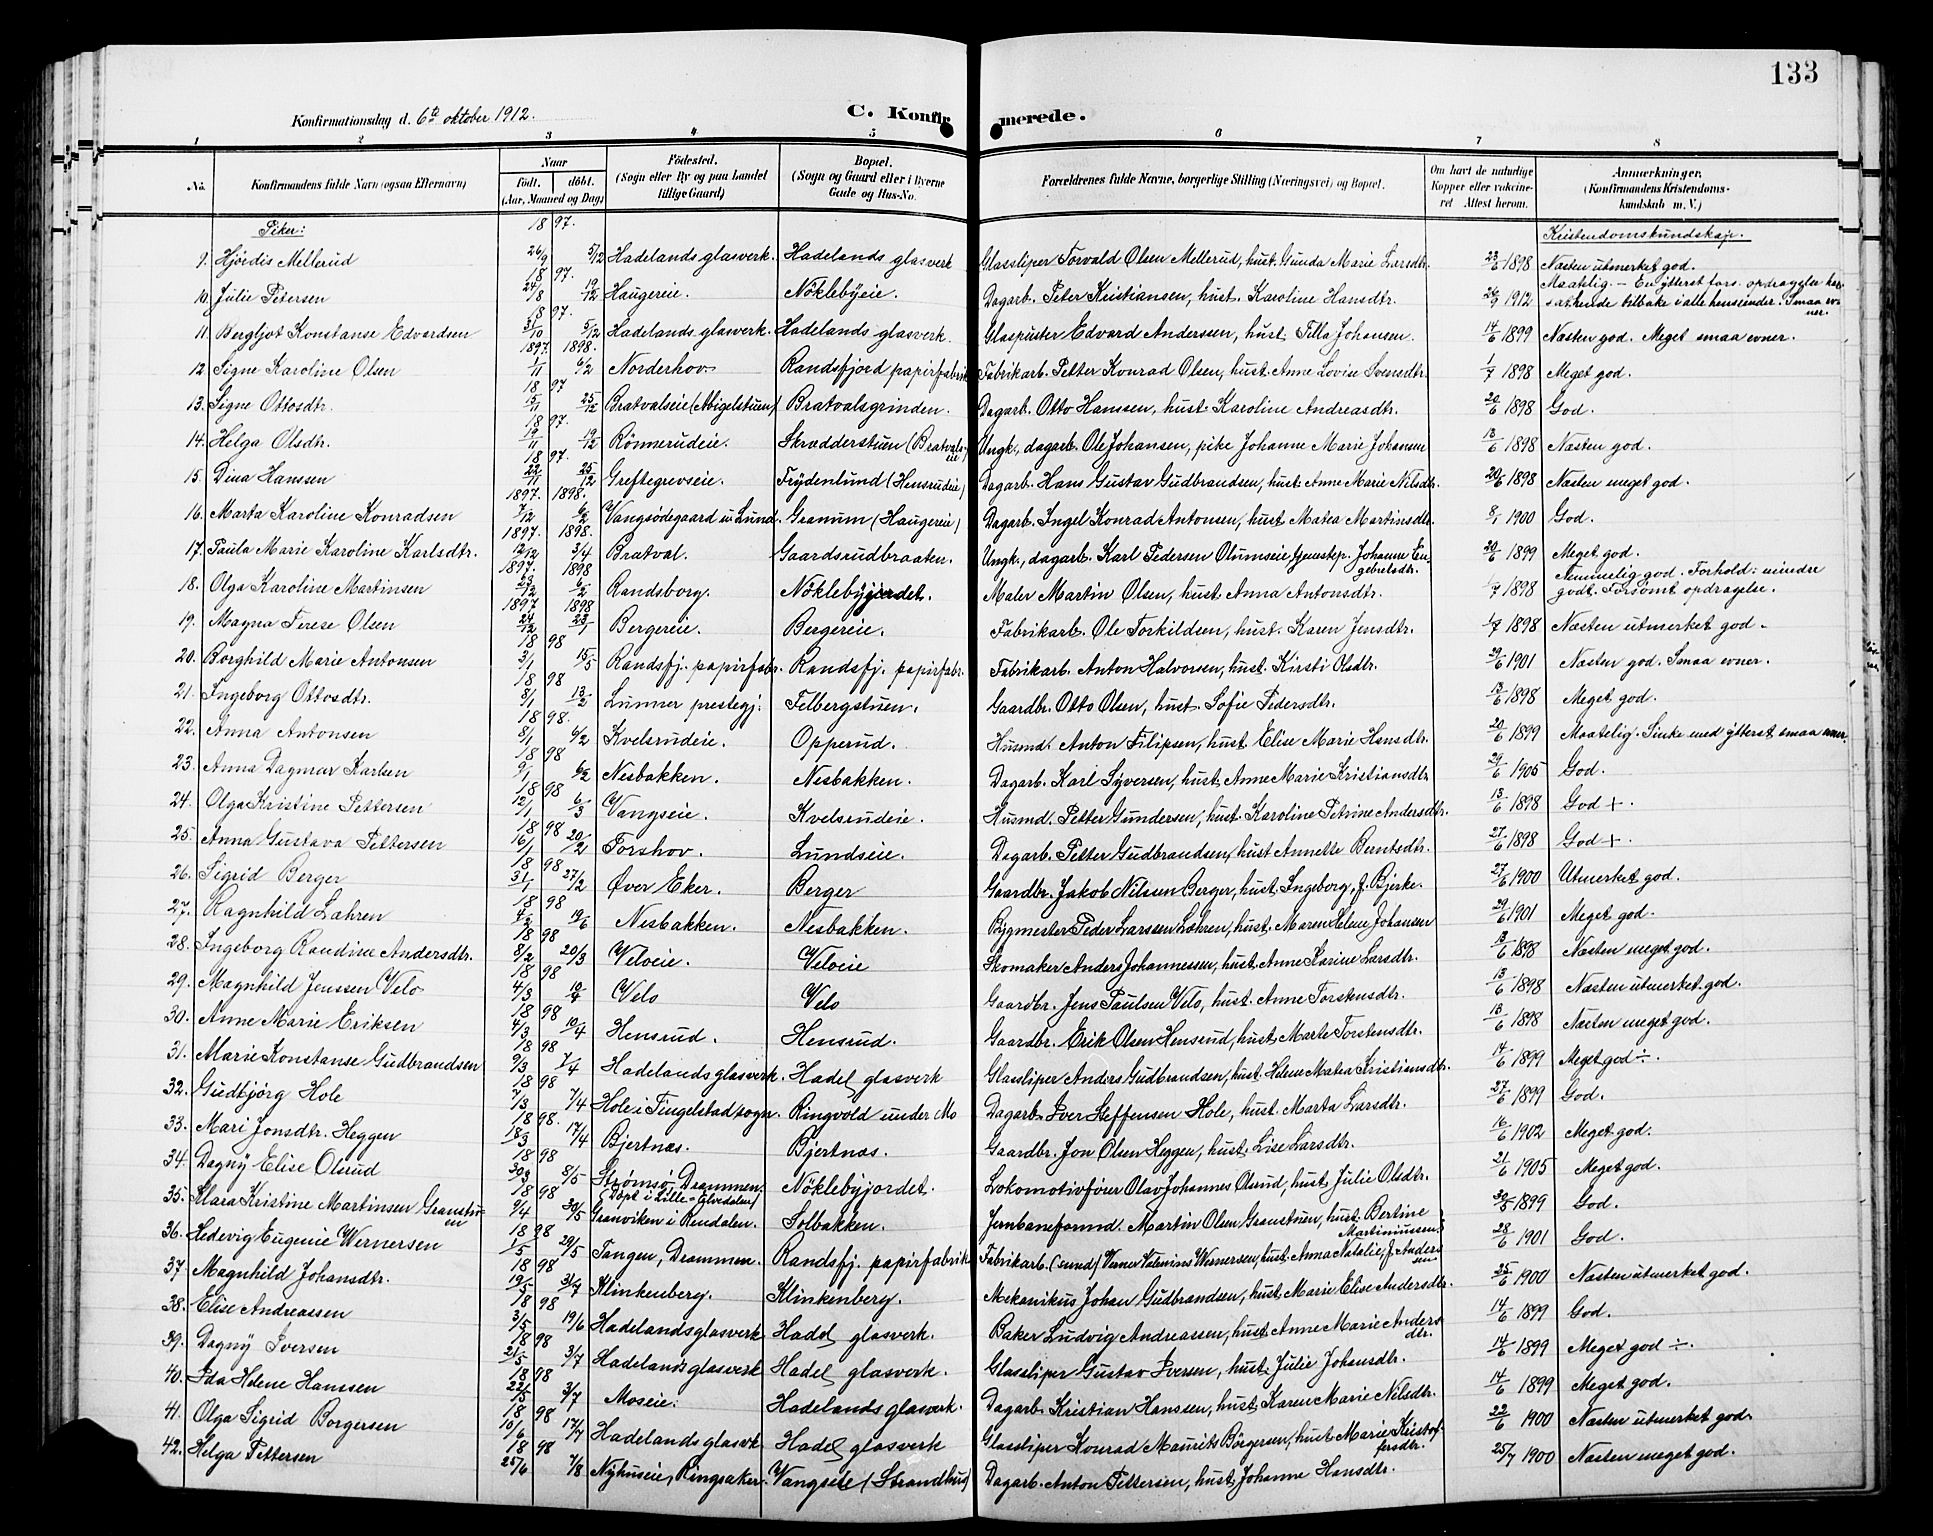 133
Konfirmationsdag d. 6te oktober 1912.
C. Konfirmerede.
1 2 3 4 5 6 7 8
No. | Konfirmandens fulde Navn (ogsaa Efternavn) | Naar født. døbt. (Aar, Maaned og Dag) | Fødested. (Sogn eller By og paa Landet tillige Gaard) | Bopæl. (Sogn og Gaard eller i Byerne Gade og Hus-No. | Forældrenes fulde Navne, borgerlige Stilling (Næringsvei) og Bopæl. | Om havt de naturlige Kopper eller vakcineret Attest herom. | Anmerkninger. (Konfirmandens Kristendomskundskab m. V.)
Piker: 1897. Kristendomskundskap.
9. Hjørdis Mellerud 26/9 5/12 Hadelands glasverk. Hadelands glasverk Glassliper Torvald Olsen Mellerud, hust. Gunda Marie Larsdtr. 23/6 1898 Næsten utmerket god.
1897.
10. Julie Petersen 24/8 19/12 Haugereie. Nøklebyeie. Dagarb. Peter Kristiansen, hust. Karoline Hansdtr. 26/9 1912 Maatelig. - En ytterst fors. opdragelse tilbake i alle henseender. Smaa evner.
1897.
11. Bergljot Konstanse Edvardsen 31/10 5/12 Hadelands glasverk. Hadelands glasverk. Glaspuster Edvard Andersen, hust. Tilla Johansen. 14/6 1899 Næsten god. Meget smaa evner.
1897. 1898.
12. Signe Karoline Olsen 1/11 6/2 Norderhov Randsfjord papirfabrik Fabrikarb. Petter Konrad Olsen, hust. Anne Lovise Svensdtr. 1/7 1898 Meget god.
1897
13. Signe Ottosdtr. 15/11 25/12 Bratvalseie (Abigelstuen) Bratvalsgrinden. Dagarb. Otto Hanssen, hust. Karoline Andreasdtr. 20/6 1898 God.
1897.
14. Helga Olsdtr. 19/11 19/12 Rønnerudeie. Skrædderstuen (Bratvalseie) Ungk., dagarb. Ole Johansen, pike Johanne Marie Johansen 13/6 1898 Næsten god.
1897.
15. Dina Hanssen 22/11 25/12 Greftegrevseie. Frydenlund (Hensrudeie) Dagarb. Hans Gustav Gudbrandsen, hust. Anne Marie Nilsdtr. 20/6 1898 Næsten meget god.
1897. 1898.
16. Marta Karoline Konradsen 7/12 6/2 Vangsødegaard u. Lund. Granum (Haugereie) Dagarb. Ingel Konrad Antonsen, hust. Matea Martinsdtr. 8/1 1900 God.
1897. 1898.
17. Paula Marie Karoline Karlsdtr. 12/12 3/4 Bratval. Gaardsrudbraaten. Ungk., dagarb. Karl Pedersen Olumseie, Johanne Engebretsdtr. 20/6 1899 Meget god.
1897. 1898
18. Olga Karoline Martinsen 23/12 6/2 Randsborg. Nøklebyjordet. Maler Martin Olsen, hust. Anna Antonsdtr. 1/7 1898 Nemmelig god. Forhold: mindre godt. Forsømt opdragelse.
1897 1898
19. Magna Terese Olsen 24/12 23/1 Bergereie. Bergereie. Fabrikarb. Ole Torkildsen, hust. Karen Jensdtr. 1/7 1898 Næsten utmerket god.
1898
20. Borghild Marie Antonsen 3/1 15/5 Randsfj. papirfabr. Randsfj. papirfabr. Fabrikarb. Anton Halvorsen, hust. Kirsti Olsdtr. 29/6 1901 Næsten god. Smaa evner.
1898
21. Ingeborg Ottosdtr. 8/1 13/2 Lunner prestegj: Felbergstuen. Gaardbr. Otto Olsen, hust. Sofie Pedersdtr. 13/6 1898 Meget god.
1898.
22. Anna Antonsen 8/1 6/2 Kvelsrudeie. Opperud. Husmd. Anton Filipsen, hust. Elise Marie Hansdtr. 20/6 1899 Maatelig. Sinke med ytterst smaa evner.
1898
23. Anna Dagmar Karlsen 9/1 6/2 Nesbakken. Nesbakken. Dagarb. Karl Syversen, hust. Anne Marie Kristiansdtr 29/6 1905 God.
1898
24. Olga Kristine Pettersen 12/1 6/3 Vangseie. Kvelsrudeie. Husmd. Petter Gundersen, hust. Karoline Petrine Andersdtr. 13/6 1898 God +.
1898
25. Anna Gustava Pettersen 16/1 20/2 Forshov. Lundseie. Dagarb. Petter Gudbrandsen, hust Annette Berntsdtr. 27/6 1898 God +.
1898
26. Sigrid Berger 31/1 27/2 Øver Eker. Berger Gaardbr. Jakob Nilssen Berger, hust. Ingeborg, f. Bjerke. 27/6 1900 Utmerket god.
1898
27. Ragnhild Læhren 4/2 19/6 Nesbakken. Nesbakken. Bygmester Peder Larssen Læhren, hust. Maren Helene Johansen 29/6 1901 Meget god.
1898
28. Ingeborg Randine Andersdtr. 8/2 20/3 Veloeie. Veloeie Skomaker Anders Johannessen, hust. Anne Karine Larsdtr. 13/6 1898 Næsten meget god.
1898
29. Magnhild Jenssen Velo 4/3 10/4 Velo Velo Gaardbr. Jens Paulsen Velo, hust. Anne Torstensdtr. 13/6 1898 Næsten utmerket god.
1898
30. Anne Marie Eriksen 4/3 10/4 Hensrud. Hensrud. Gaardbr. Erik Olsen Hensrud, hust. Marte Torstensdtr. 13/6 1898 Næsten meget god.
1898
31. Marie Konstanse Gudbrandsen 9/3 7/4 Hadelands glasverk. Hadel. glasverk Glassliper Anders Gudbrandsen, hust. Helene Matea Kristiansdtr. 14/6 1899 Meget god ÷.
1898
32. Gudbjørg Hole 7/3 7/4 Hole i Tingelstad sogn. Ringvold under Mo Dagarb. Iver Steffensen Hole, hust. Marta Larsdtr. 27/6 1899 God.
1898.
33. Mari Jonsdtr. Heggen 18/3 17/4 Bjertnæs. Bjertnæs. Gaardbr. Jon Olsen Heggen, hust. Lise Larsdtr. 16/6 1902 Meget god.
1898
34. Dagny Elise Olsrud 30/3 8/5 Strømsø, Drammen. (Døpt i Lille-Elvedalen) Nøklebyjordet. Lokomotivfører Olav Johannes Olsrud, hust. Julie Olsdtr. 21/6 1905 Meget god.
1898
35. Klara Kristine Martinsen Granstuen 9/4 30/5 Granviken i Rendalen. Solbakken. Jernbaneformd. Martin Olsen Granstuen, hust. Bertine Martiniussen. 30/5 1899 God.
1898
36. Hedevig Eugenie Wernersen 1/5 29/5 Tangen, Drammen. Randsfj. papirfabrik Fabrikarb. (smed) Verner Valenins Wernersen, hust. Anna Natalie, f. Andersen 28/6 1901 God.
1898
37. Magnhild Johansdtr. 19/5 3/7 Klinkenberg. Klinkenberg. Mekanikus Johan Gudbrandsen, hust. Marie Elise Andersdtr. 25/6 1900 Næsten utmerket god.
1898
38. Elise Andreassen 3/5 19/6 Hadelands glasverk Hadel. glasverk. Baker Ludvig Andreassen, hust. Anne Marie Andersdtr. 14/6 1899 God.
1898
39. Dagny Iversen 21/5 3/7 Hadelands glasverk Hadel. glasverk. Glassliper Gustav Iversen, hust. Julie Johansdtr. 14/6 1899 Meget god ÷.
1898
40. Ida Helene Hanssen 22/5 3/7 Moseie. Hadelands glasverk. Dagarb. Kristian Hanssen, hust. Karen Marie Nilsdtr. 14/6 1899 Meget god.
1898
41. Olga Sigrid Borgersen 10/6 17/7 Hadelands glasvk Hadel. glasverk Glassliper Konrad Maurits Børgersen, hust. Marie Kristoffersdtr. 22/6 1900 Næsten utmerket god.
1898
42. Helga Pettersen 25/6 7/8 Nyhuseie, Ringsaker. Vangseie (Strandhus) Dagarb. Anton Pettersen, hust. Johanne Hansdtr. 25/7 1900 Næsten meget god.